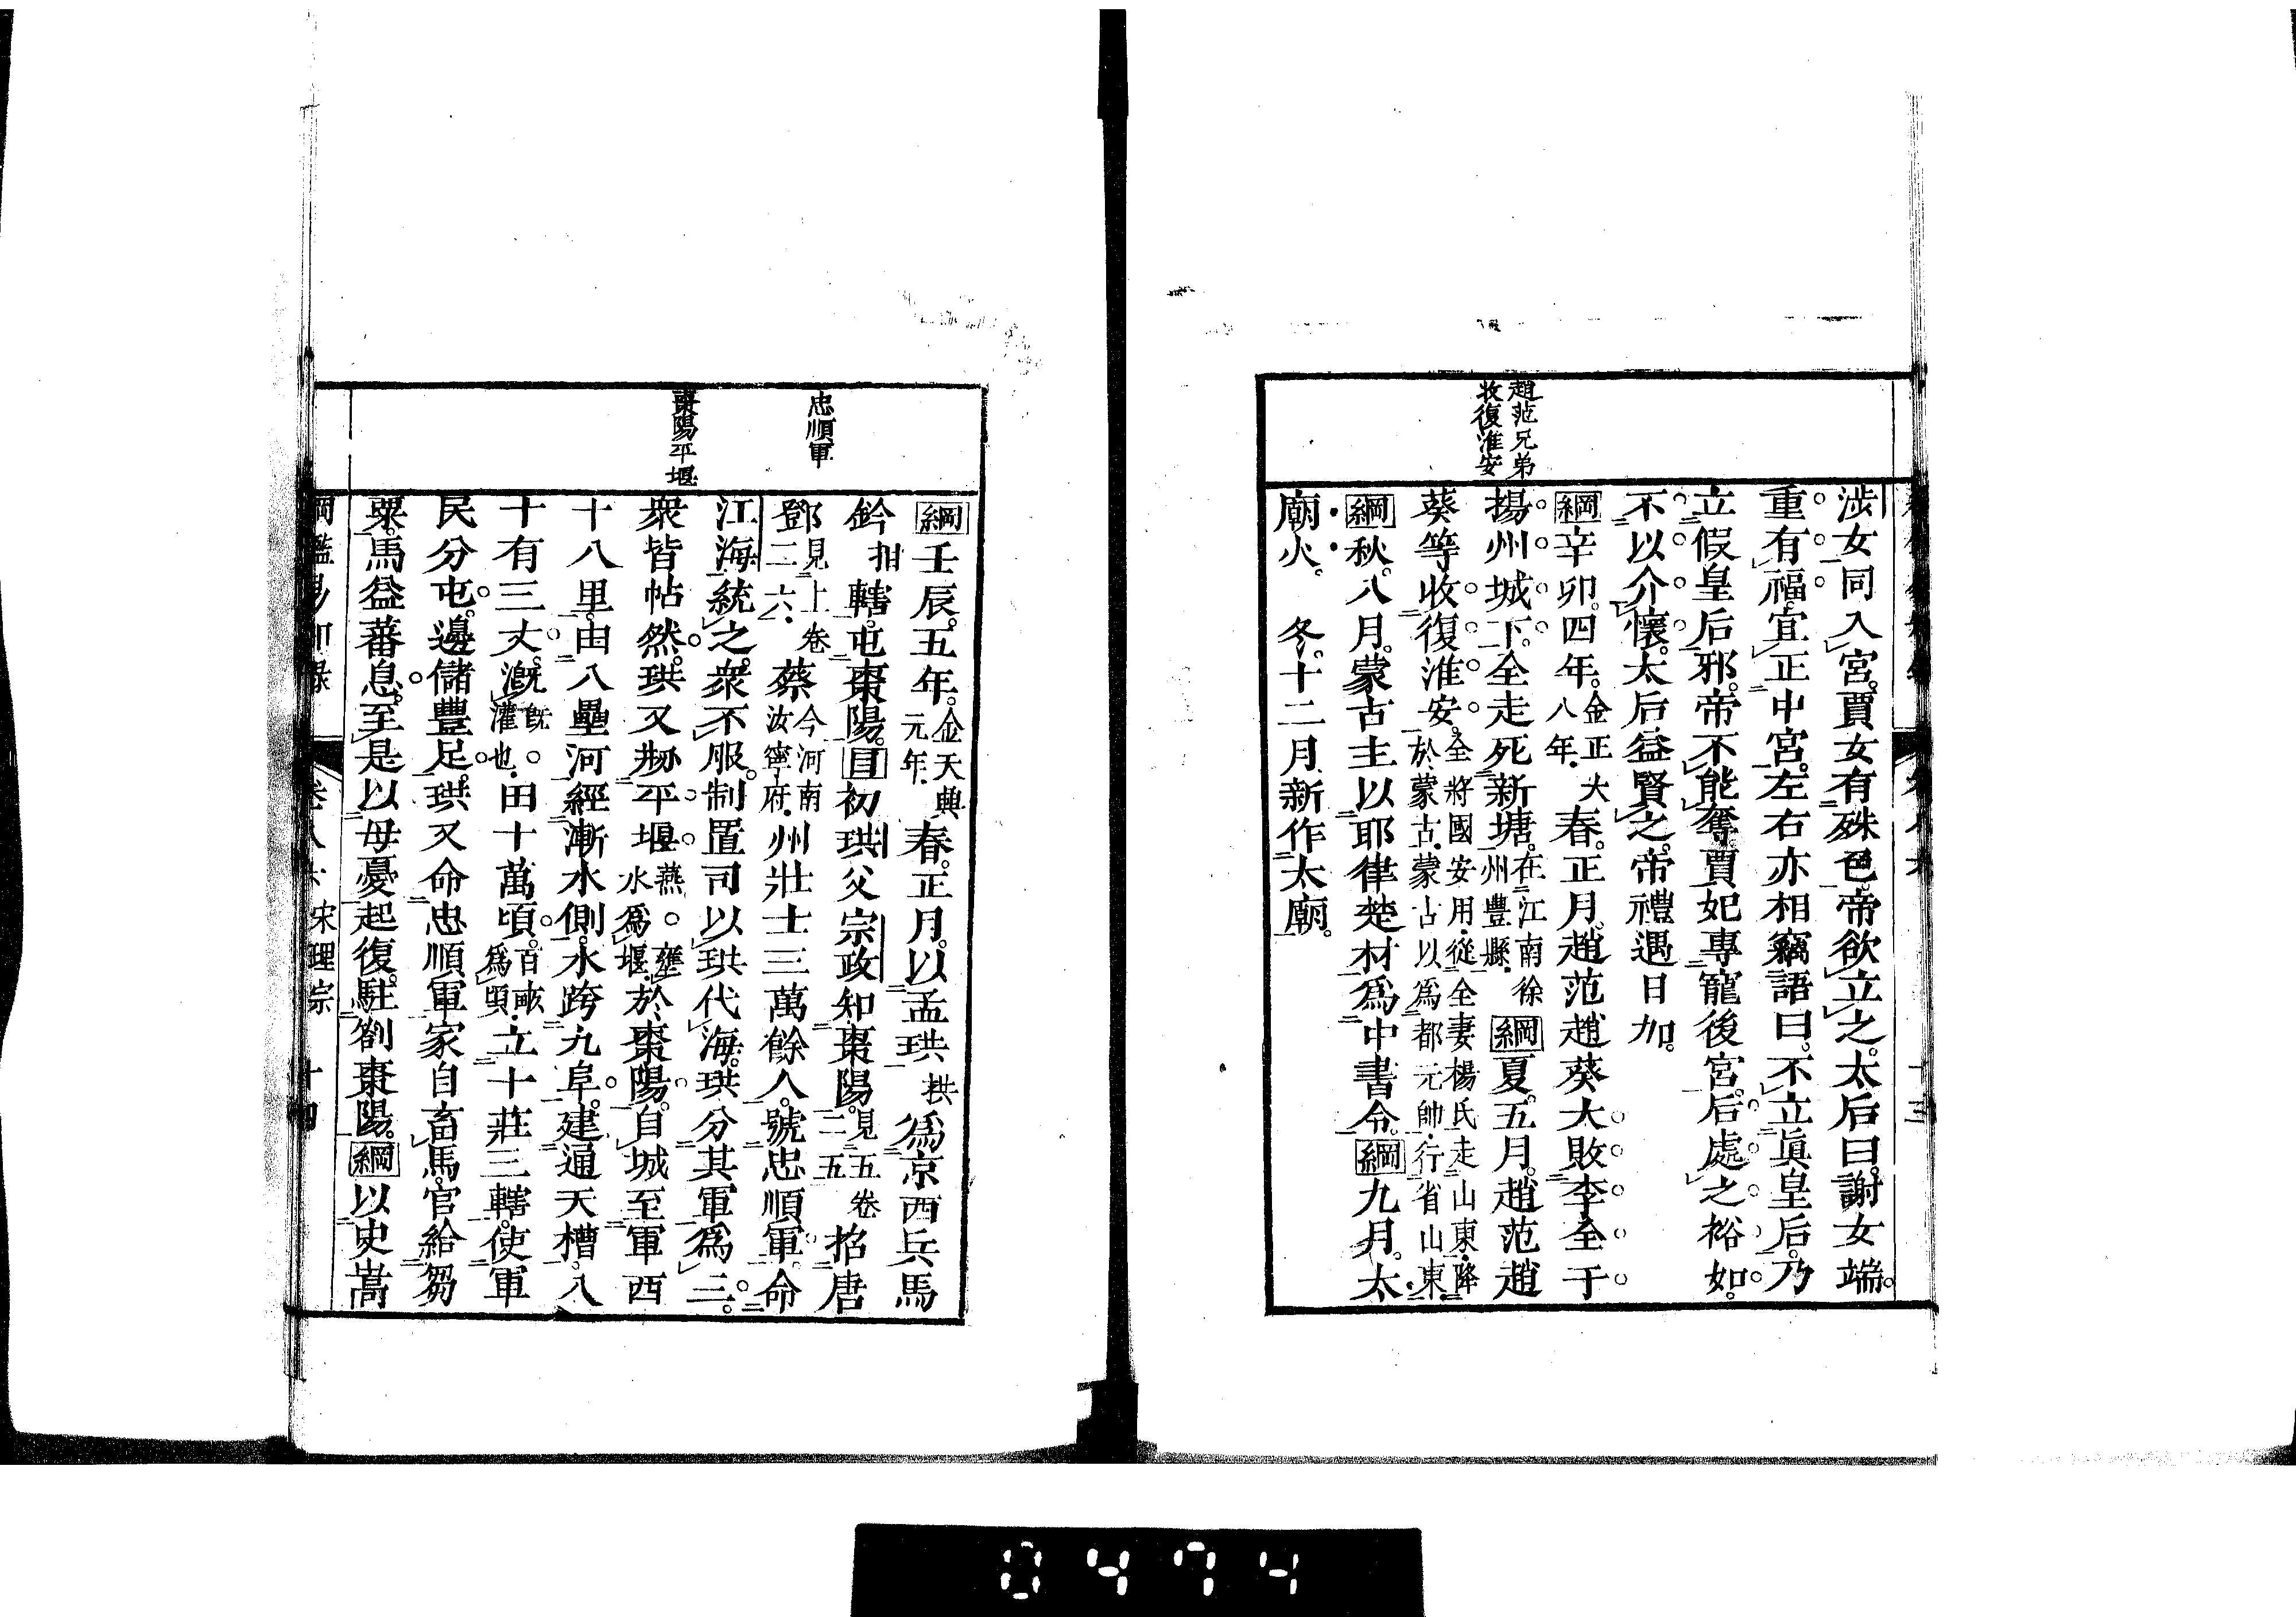 趙范兄弟
收復淮安
涉女同入宮。賈女有殊色。帝欲立之。太后曰。謝女端。
重有福。宜正中宮。左右亦相竊語曰。不立眞皇后。乃
立假皇后邪。帝不能奪。賈妃專寵後宮。后處之裕如。
不以介懷。太后益賢之。帝禮遇日加。
綱辛卯。四年。金正大八年。春。正月。趙范趙葵大敗李全于
揚州城下。全走死新塘。在江南徐州豐縣。綱夏。五月。趙范趙
葵等收復淮安。全將國安用。從全妻楊氏走山東。降於蒙古。蒙古以爲都元帥。行省山東。
綱秋。八月。蒙古主以耶律楚材爲中書令。綱九月。太
廟火。 冬。十二月。新作太廟。
忠順軍
棗陽平堰
綱壬辰。五年。金天興元年。春。正月。以孟珙栱爲京西兵馬
鈐拑轄。屯棗陽。目初珙父宗政知棗陽。見五卷二五招唐
鄧見上卷二六。蔡今河南汝寧府。州壯士三萬餘人。號忠順軍。命
江海統之。衆不服。制置司以珙代海。珙分其軍爲三。
衆皆帖然。珙又剏平堰燕。壅水爲堰。於棗陽。自城至軍西
十八里。由八壘河經漸水側。水跨九阜。建通天槽。八
十有三丈。漑旣。灌也。田十萬頃。百畝爲頃。立十莊三轄。使軍
民分屯。邊儲豐足。珙又命忠順軍家自畜馬。官給芻
粟。馬益蕃息。至是以母憂起復。駐劄棗陽。綱以史嵩
綱鑑易知錄 卷八六 宋理宗 十四
0474